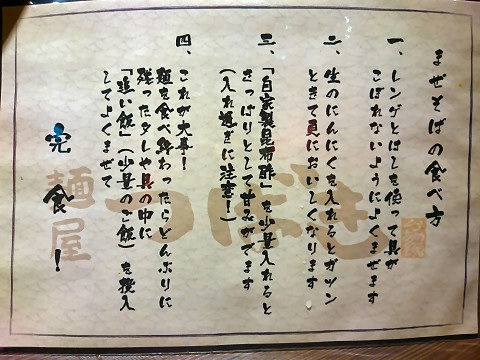 まぜそばの食べ方
一、レンゲとはしを使って具が
こぼれないようによくまぜます
二、生のにんにくを入れるとガツン
ときて更においしくなります
三、「自家製昆布酢」を少量入れると
さっぱりとして甘みがでます
(入れ過ぎに注意!)
四、これが大事!
麺を食べ終わったらどんぶりに
残ったタレや具の中に
「追い飯」(少量のご飯)を投入
してよくまぜて
完食!
麺屋